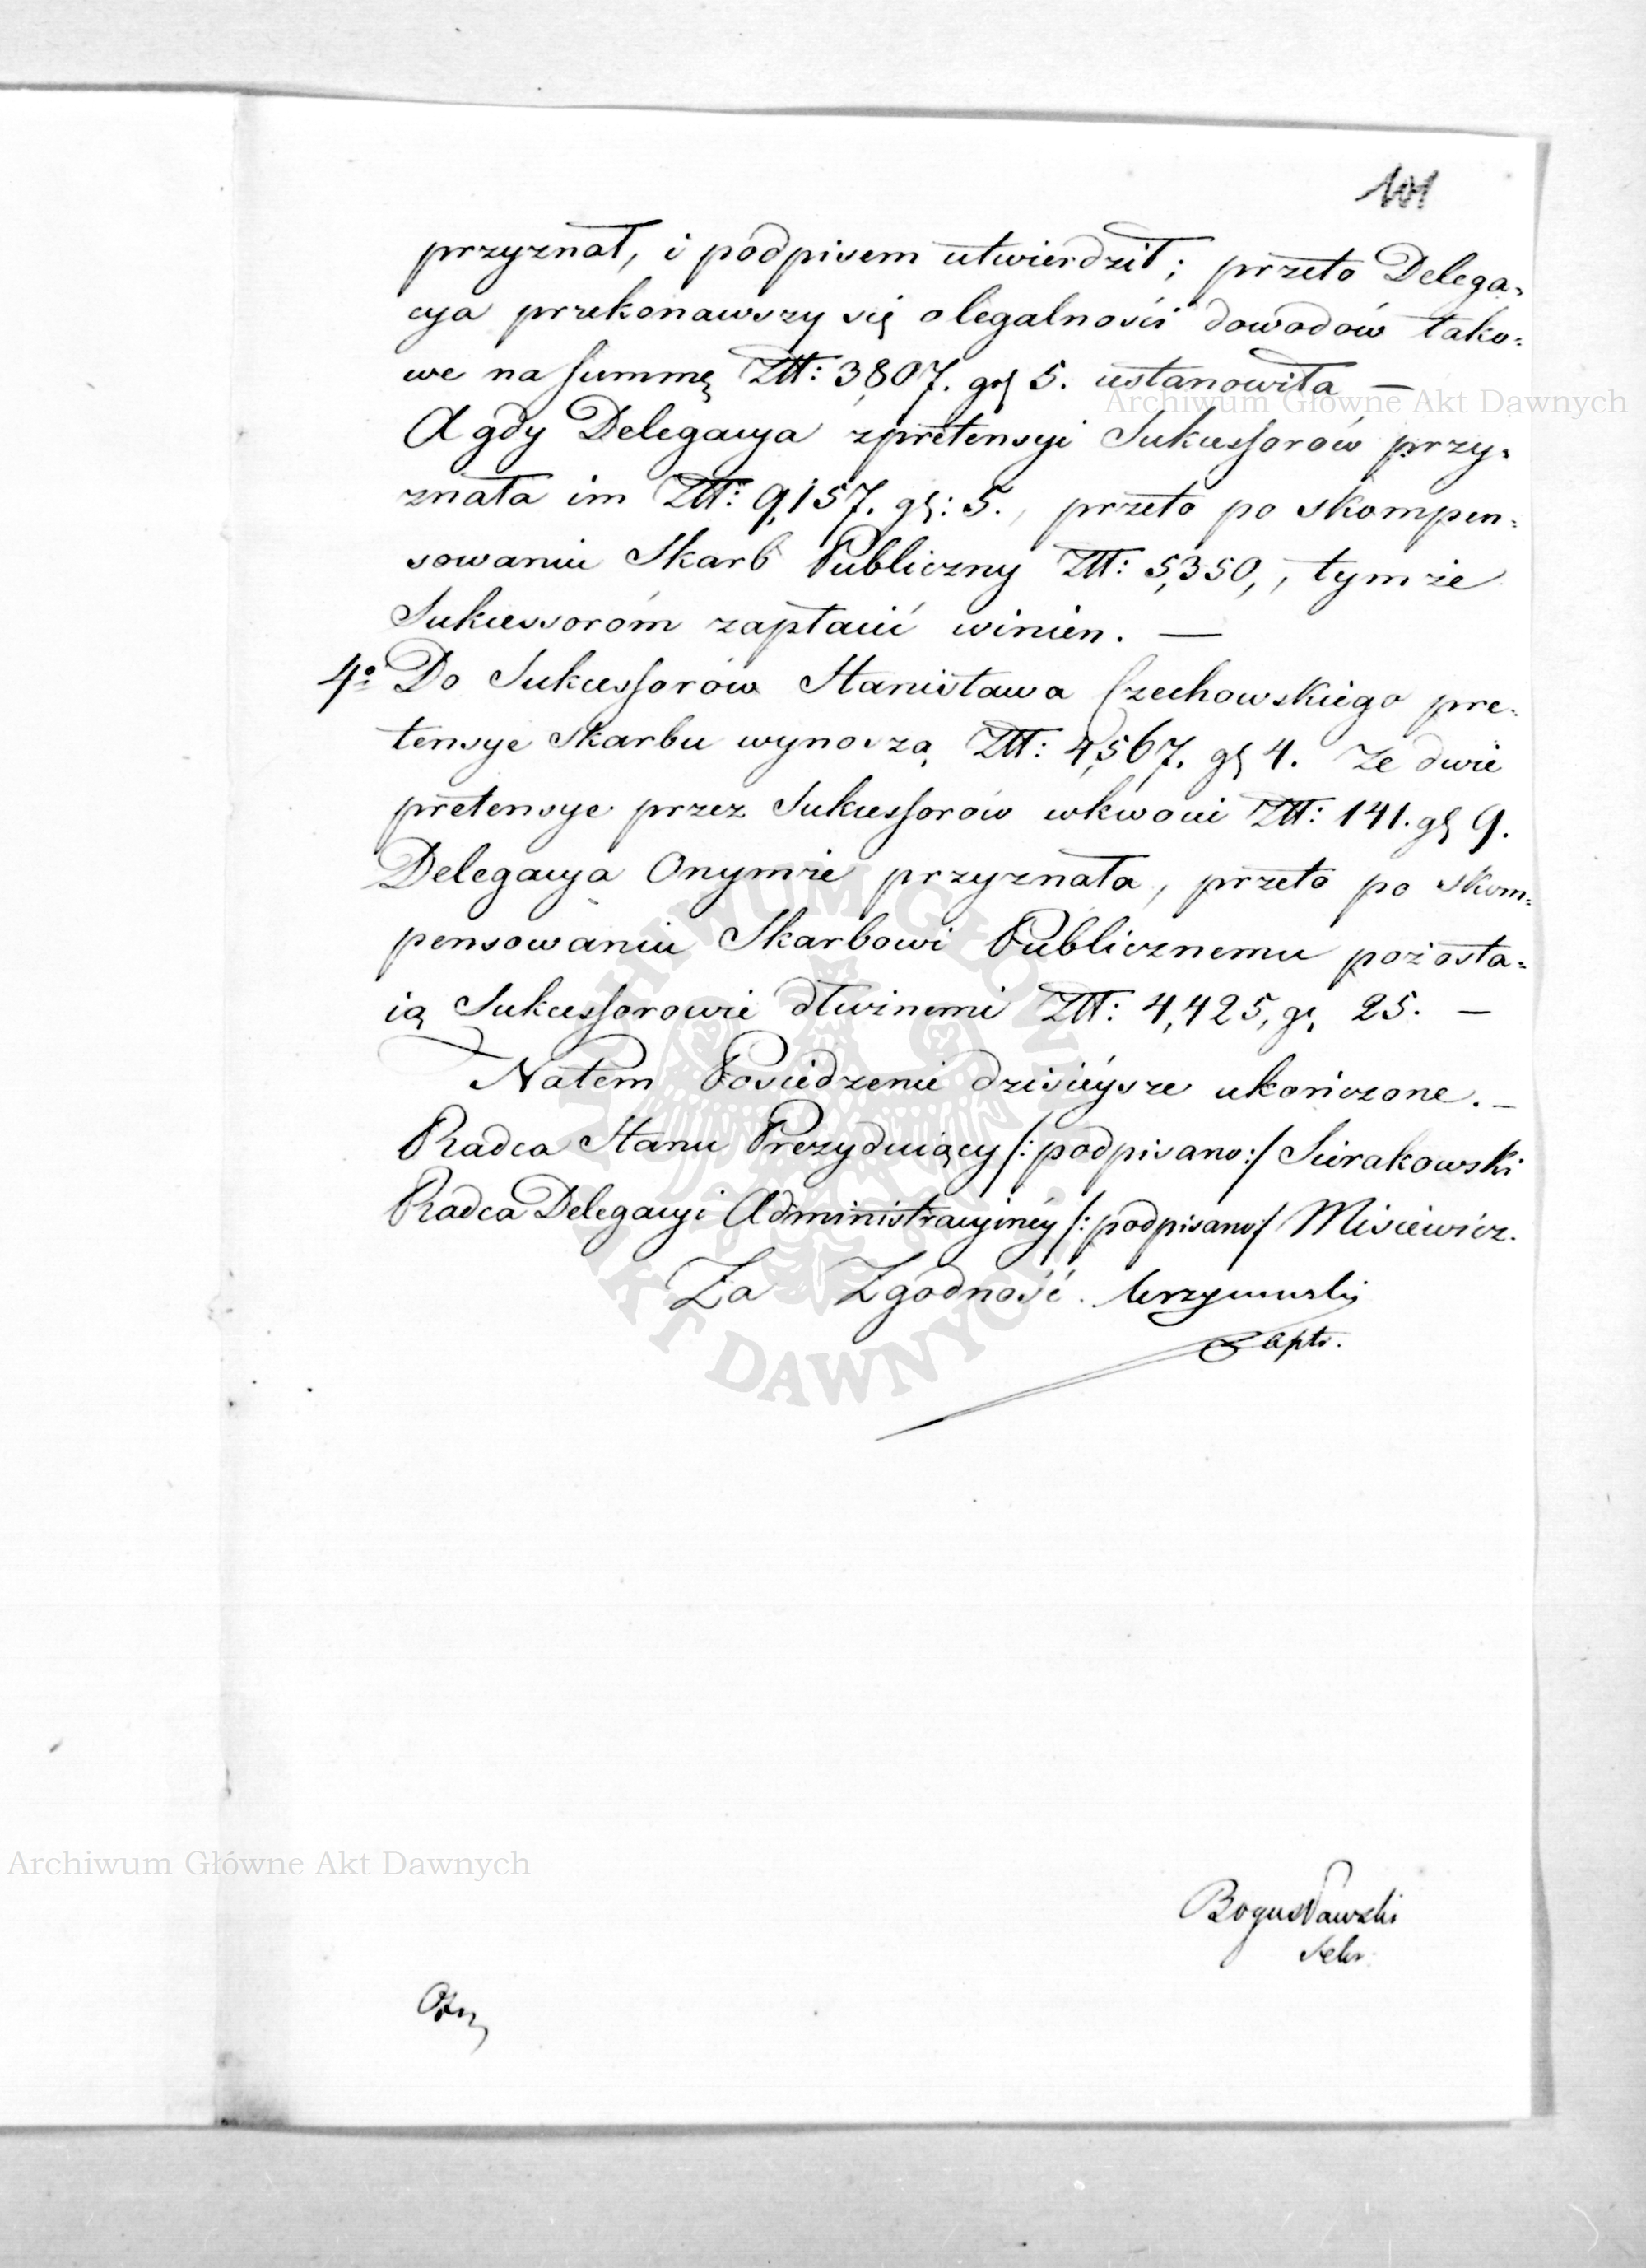 101
przyznał, i podpisem utwierdził; przeto Delega=
cya przekonawszy się o legalności dowodów tako=
we na summę Złł: 3,807. gr 5. ustanowiła —
A gdy Delegacya z pretensyi Sukcessorów przy=
znała im Złł: 9,157. gr: 5., przeto po skompen=
sowaniu Skarb Publiczny Złł: 5,350,, tymże
Sukcessoróm zapłacić winien. —
4o Do Sukcessorów Stanisława Czechowskiego pre=
tensye Skarbu wynoszą Złł: 4,567. gr 4. Że dwie
pretensye przez Sukcessorów w kwocie Złł: 141. gr 9.
Delegacya Onymże przyznała, przeto po skom=
pensowaniu Skarbowi Publicznemu pozosta=
ią Sukcessorowie dłużnemi Złł: 4,425, gr 25. —
Na tem Posiedzenie dzisieysze ukończone. —
Radca Stanu Prezyduiący /: podpisano :/ Sierakowski
Radca Delegacyi Administracyinéy /: podpisano / Misiewicz.
Za Zgodność.
Archiwum Główne Akt Dawnych
Archiwum Główne Akt Dawnych
ARCHIWUM GŁÓWNE AKT DAWNYCH
Bogusławski
Sekr.